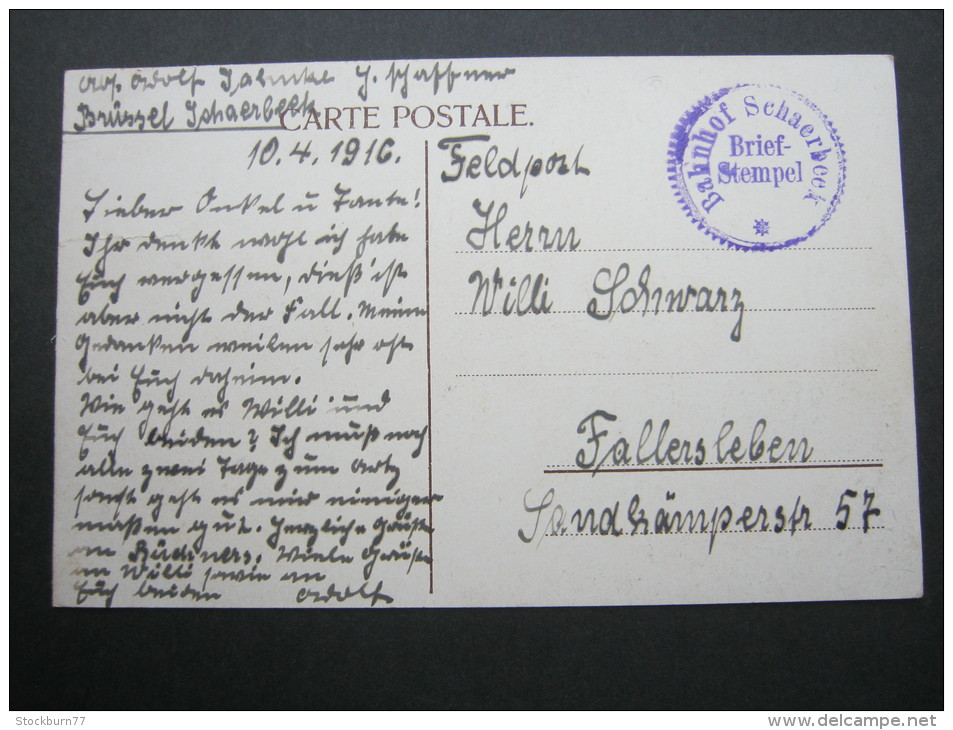 Abs. Adolf H. Schaffner
Brüssel Schaerbeek
CARTE POSTALE.
10.4.1916.
Lieber Onkel u Tante!
Ihr denkt wohl ich habe
Euch vergessen, dieß ist
aber nicht der Fall. Meine
Gedanken weilen sehr oft
bei Euch daheim.
Wie geht es Willi und
Euch beiden? Ich muß noch
alle zwei Tage zum Artz
sonst geht es mir einiger
maßen gut. Herzliche Grüße
an Büchners. Viele Grüße
an Willi sowie an
Euch beiden Adolf
Feldpost
Herrn
Willi Schwarz
Fallersleben
Sandkämperstr 57
Bahnhof Schaerbeek
Brief-
Stempel
Stockburn77
www.delcampe.net